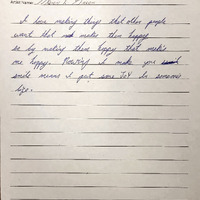 Artist Name:
I love making things that other people
want that makes them happy
or by making them happy that makes
me happy. Knowing I make you
smile means I put some JOY in someone's
life.